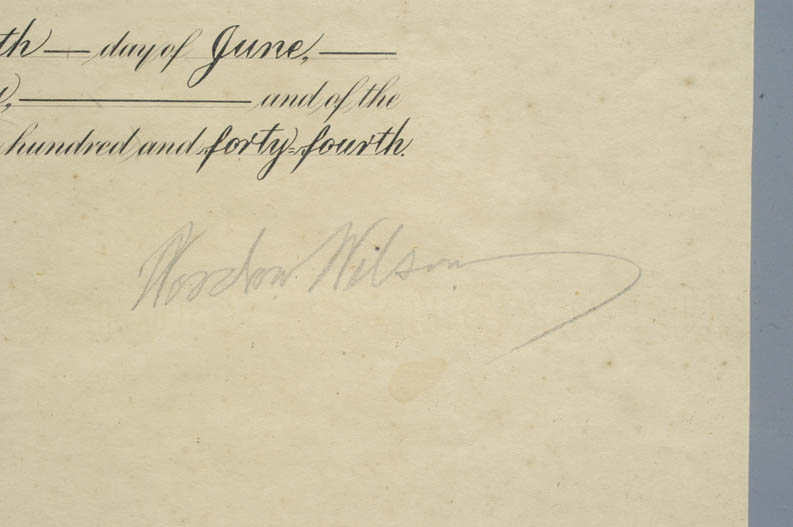 th — day of June, —
, — and of the
hundred and forty-fourth.
Woodrow Wilson